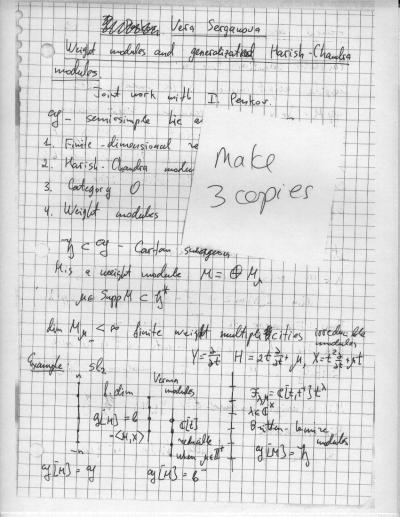 Vera Serganova
Weight modules and generalized Harish-Chandra
modules
Joint work with I. Penkov
𝔤 – semisimple Lie
1. Finite-dimensional
2. Harish-Chandra
3. Category O
4. Weight modules
Make
3 copies
𝔥 ⊂ 𝔤 – Cartan
M is a weight module M = ⊕ M_μ
μ ∈ Supp M ⊂ 𝔥*
dim M_μ < ∞ finite weight multiplicities irreducible
modules
Y = ∂/∂t H = 2t ∂/∂t + μ, X = t² ∂/∂t + μt
Example sl₂
n
f. dim
-n
𝔤[M] = 𝔤
Verma
modules
𝔤[M] = b
-<H, X>
ℂ[t]
reducible
when
𝔤[M] = b⁻
λ ∈ ℂ
Britten-Lemire
modules
𝔤[M] = 𝔥